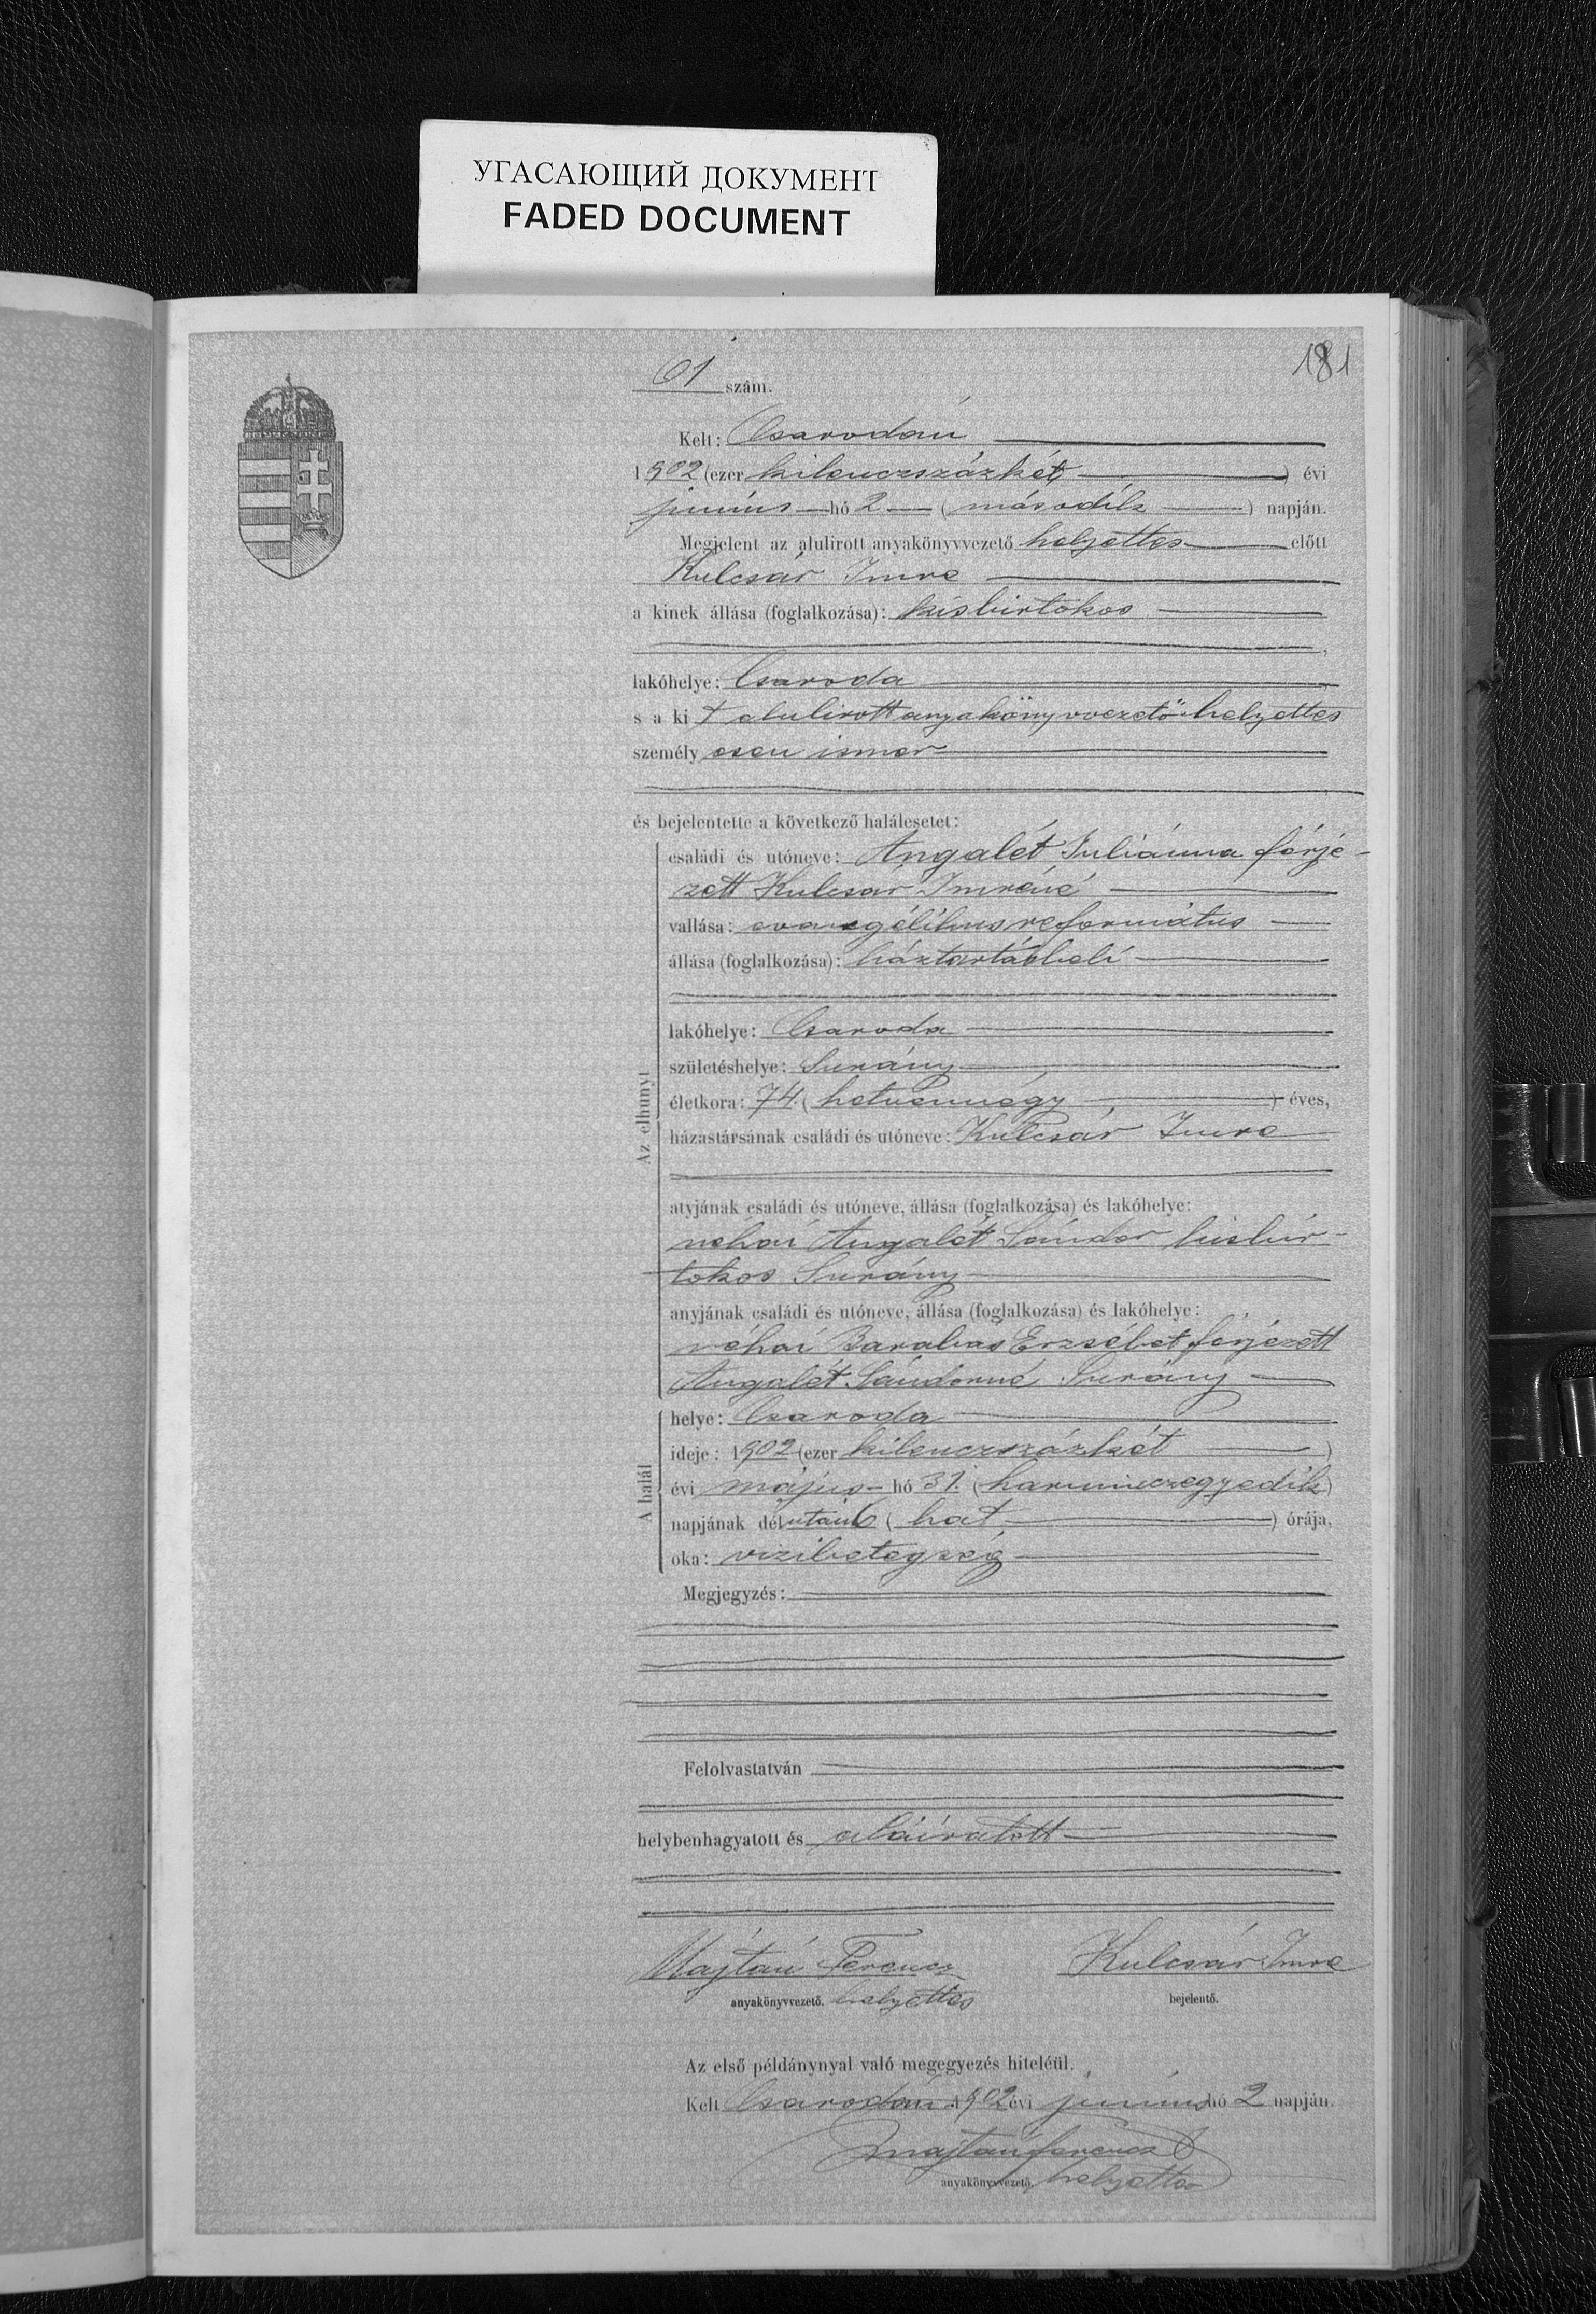 УГАСАЮЩИЙ ДОКУМЕНТ
FADED DOCUMENT
181
61 szám.
Kelt: Csarodán
1902 (ezer kilenczszázkét) évi
június hó 2 (második) napján.
Megjelent az alulirott anyakönyvvezető helyettes előtt
Kulcsár Imre
a kinek állása (foglalkozása): kisbirtokos
lakóhelye: Csaroda
s a kit alulirott anyakönyvvezető helyettes
személyesen ismer
és bejelentette a következő halálesetet:
Az elhunyt
családi és utóneve: Angalét Juliánna férje-
zett Kulcsár Imréné
vallása: evangélikus református
állása (foglalkozása): háztartásbeli
lakóhelye: Csaroda
születéshelye: Surány
életkora: 74. (hetvennégy) éves,
házastársának családi és utóneve: Kulcsár Imre
atyjának családi és utóneve, állása (foglalkozása) és lakóhelye:
néhai Angalét Sándor kisbir-
tokos Surány
anyjának családi és utóneve, állása (foglalkozása) és lakóhelye:
néhai Barabás Erzsébet férjezett
Angalét Sándorné Surány
A halál
helye: Csaroda
ideje: 1902 (ezer kilenczszázkét)
évi május hó 31. (harminczegyedik)
napjának délután 6 (hat) órája,
oka: vizibetegség
Megjegyzés:
Felolvastatván
helybenhagyatott és aláiratott
Majtán Ferencz Kulcsár Imre
anyakönyvvezető. helyettes bejelentő.
Az első példánynyal való megegyezés hiteléül.
Kelt Csarodán 1902 évi június hó 2 napján.
Majtán Ferencz
anyakönyvvezető. helyettes